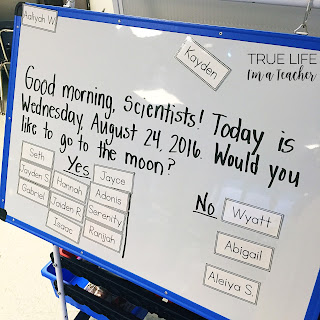 Aaliyah W.
Kayden
TRUE LIFE
I'm a Teacher
Good morning, Scientists! Today is
Wednesday, August 24, 2016. Would you
like to go to the moon?
Yes
Seth
Jayden S.
Gabriel
Hannah
Jaiden R.
Isaac
Jayce
Adonis
Serenity
Ranijah
No
Wyatt
Abigail
Aleiya S.